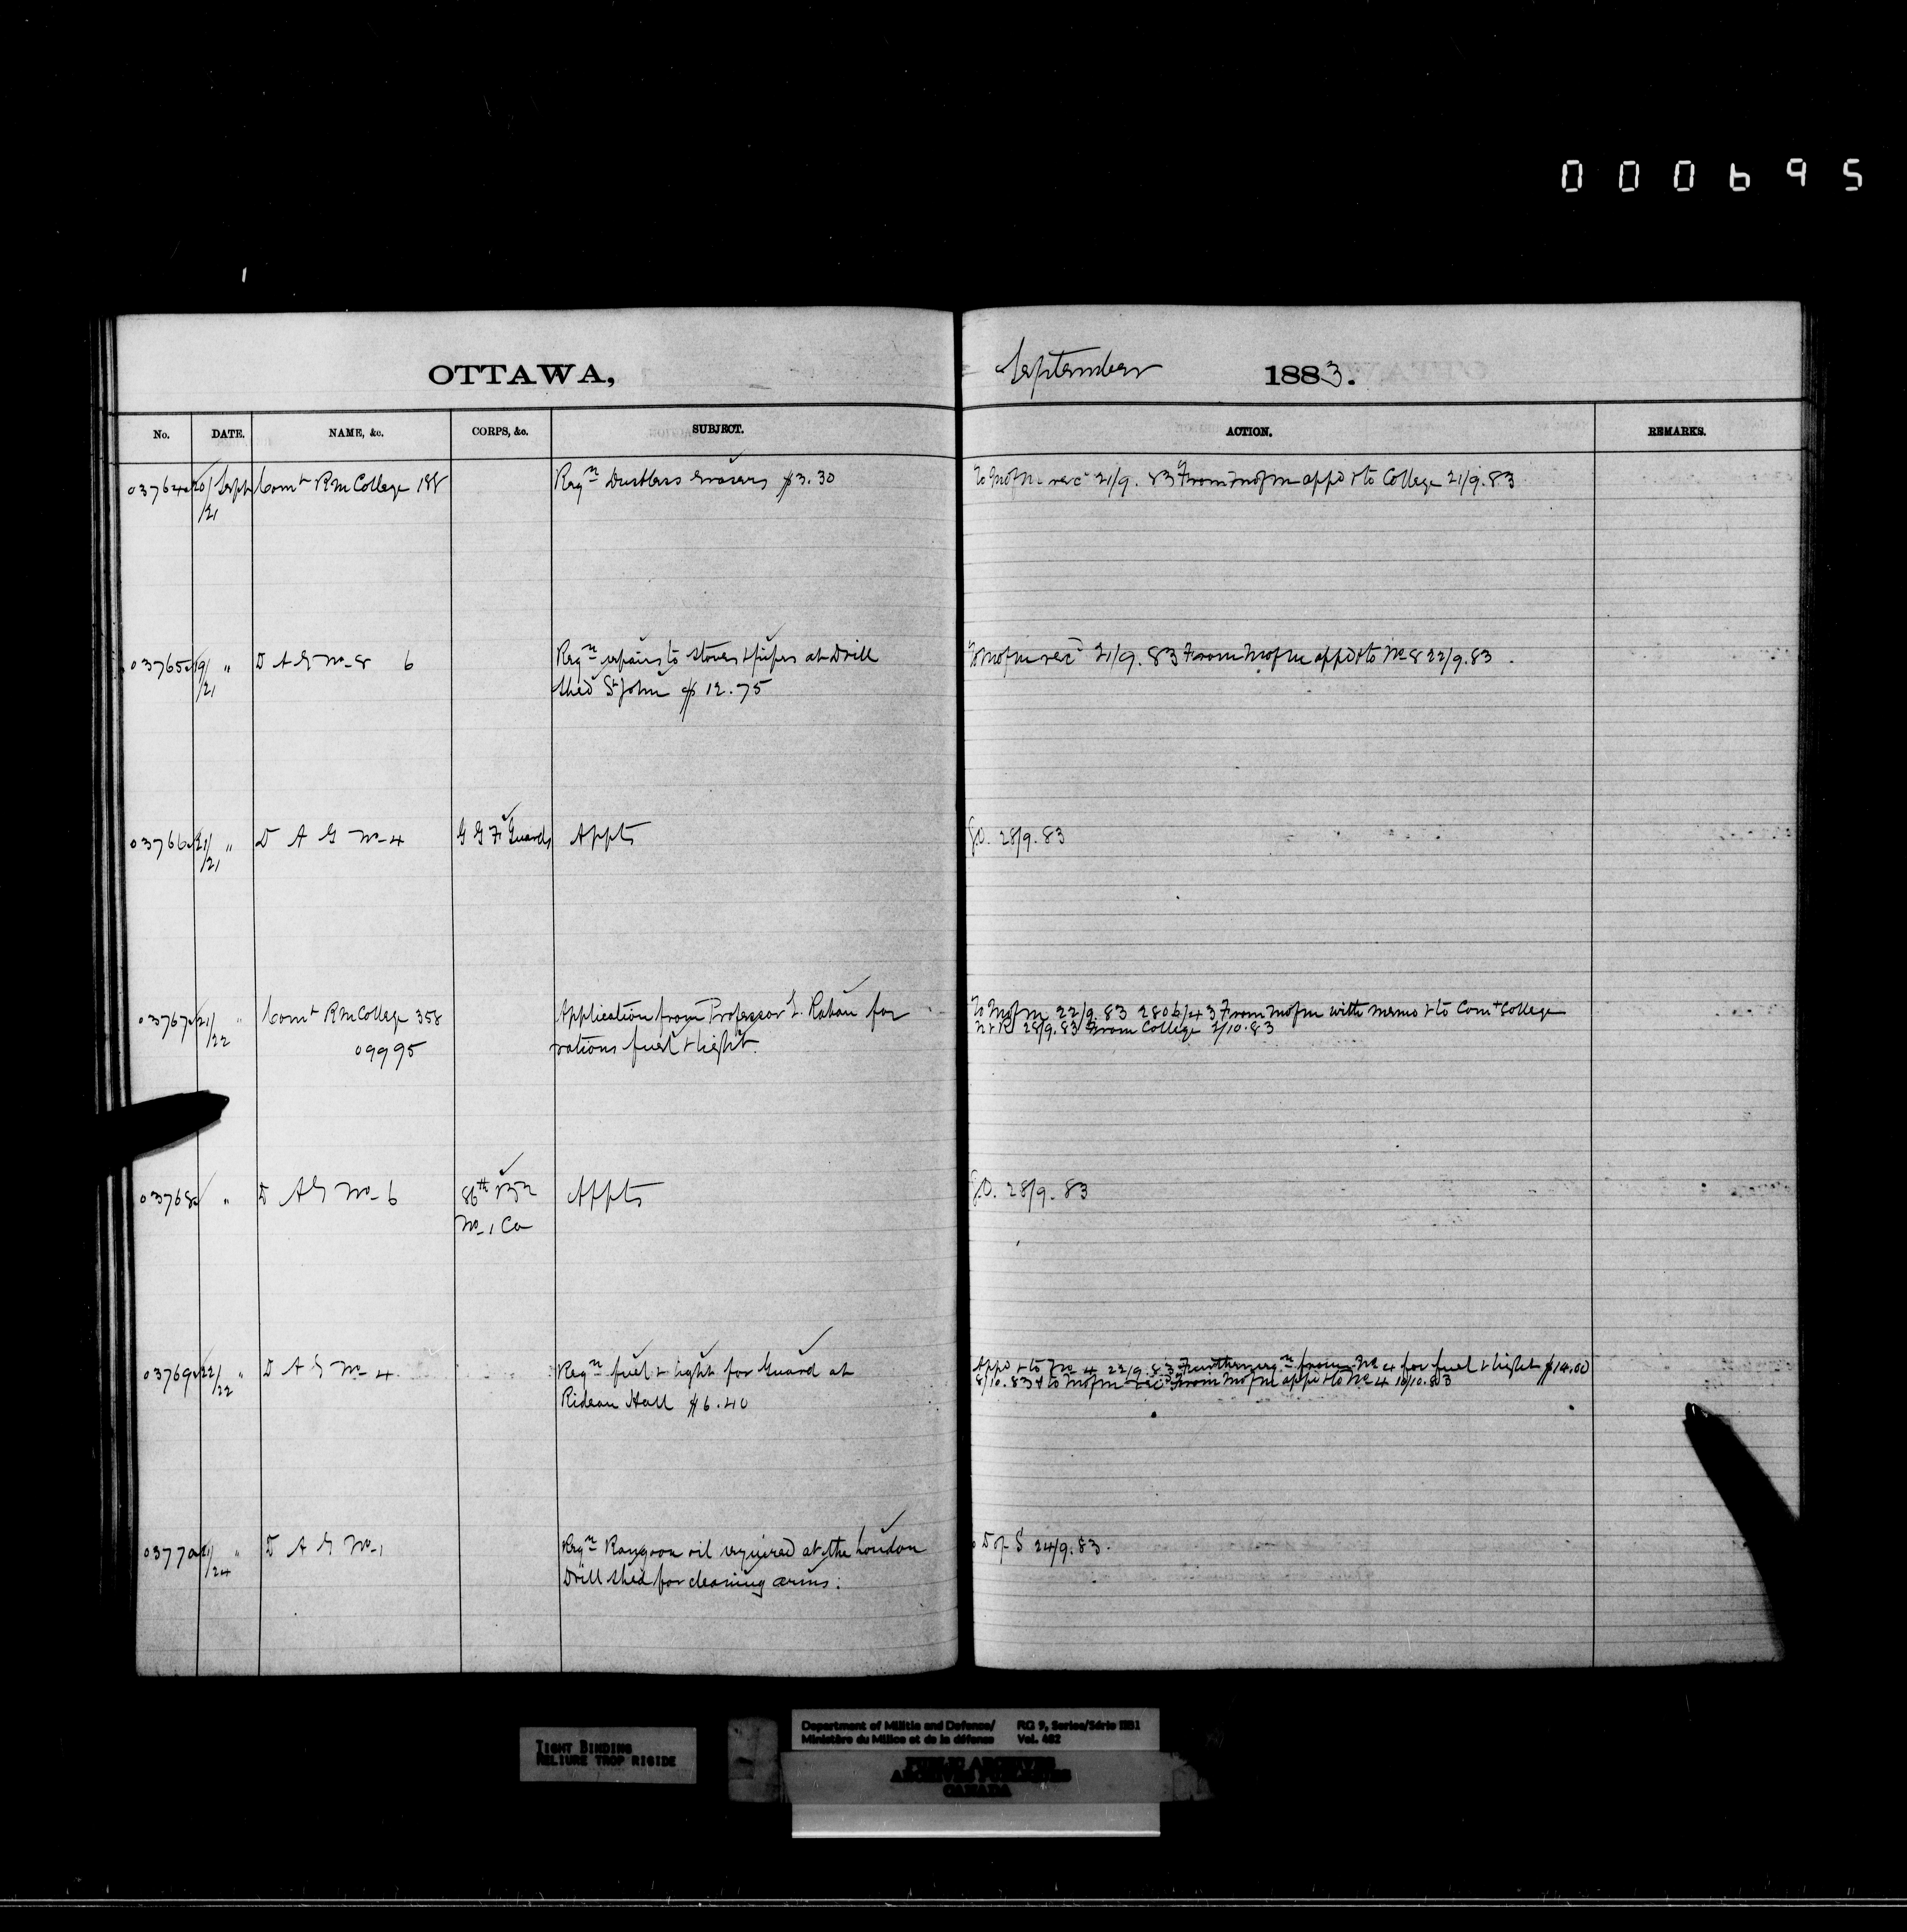 000695
OTTAWA, September 1883.
No. DATE. NAME, &c. CORPS, &c. SUBJECT. ACTION. REMARKS.
03764 20/Sept Comt R M College 188 Reqn Dustless Erasers $3.30 To M of M rec 21/9.83 From M of M appd & to College 21/9.83
/21
03765 19/ " D A G No 8 6 Reqn repairs to stoves & pipes at Drill To M of M rec 21/9.83 From M of M appd & to No 8 22/9.83.
/21 shed St John $12.75
03766 21/ " D A G No 4 G G F Guards Appts G.O. 28/9.83
/21
03767 21/ " Comt R M College 358 Application from Professor for To M of M 22/9.83 From M of M with memo & to Comt College
/22 09995 rations fuel & light. 28/9.83 From College 1/10.83
03768 " D A G No 6 86th Bn Appts G.O. 28/9.83
No 1 Co
03769 22/ " D A G No 4 Reqn fuel & light for Guard at Appd & to No 4 22/9.83 Further reqn from No 4 for fuel & light $14.00
/22 Rideau Hall $6.40 8/10.83 & to M of M rec From M of M appd & to No 4 10/10.83
03770 21/ " D A G No 1 Reqn Rangoon oil required at the London D of S 24/9.83.
/24 Drill shed for cleaning arms.
TIGHT BINDING
RELIURE TROP RIGIDE
Department of Militia and Defence/ RG 9, Series/Série IIB1
Ministère du Milice et de la défense Vol. 462
PUBLIC ARCHIVES
ARCHIVES PUBLIQUES
CANADA